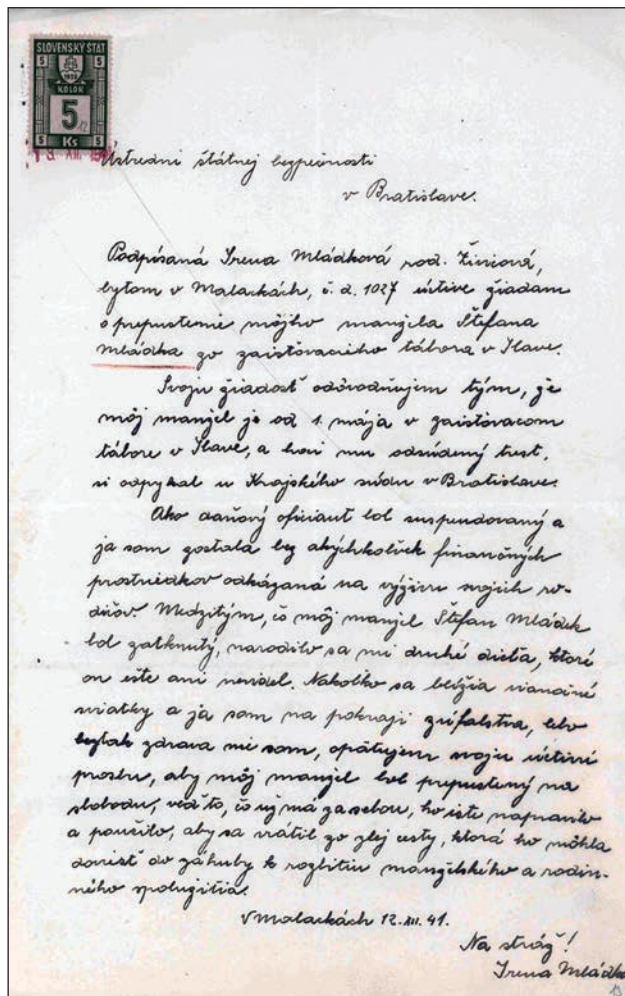 SLOVENSKÝ ŠTÁT
5 5
1939
KOLOK
5
5 Ks 5
Ústredni štátnej bezpečnosti
v Bratislave.
Podpísaná Irena Mládková rod.
bytom v Malackách, č. d. 1027 úctive žiadam
o prepustenie môjho manžela Štefana
Mládka zo zaisťovacieho tábora v Ilave.
Svoju žiadosť odôvodňujem tým, že
môj manžel je od 1. mája v zaisťovacom
tábore v Ilave, a hoci mu odsúdený trest,
si odpykal u Krajského súdu v Bratislave.
Ako daňový oficiant bol suspendovaný a
ja som zostala bez akýchkoľvek finančných
prostriedkov odkázaná na výživu svojich ro-
dičov. Medzitým, čo môj manžel Štefan Mládek
bol zatknutý, narodilo sa mi druhé dieťa, ktoré
on ešte ani nevidel. Nakoľko sa blížia vianočné
sviatky a ja som na pokraji zúfalstva, lebo
beztak zdravá nie som, opätujem svoju úctivú
prosbu, aby môj manžel bol prepustený na
slobodu, veď to, čo už má za sebou, ho iste napravilo
a poučilo, aby sa vrátil zo zlej cesty, ktorá ho mohla
doviesť do záhuby k rozbitiu manželského a rodin-
ného spolužitia.
V Malackách 12.XII.41.
Na stráž!
Irena Mládk